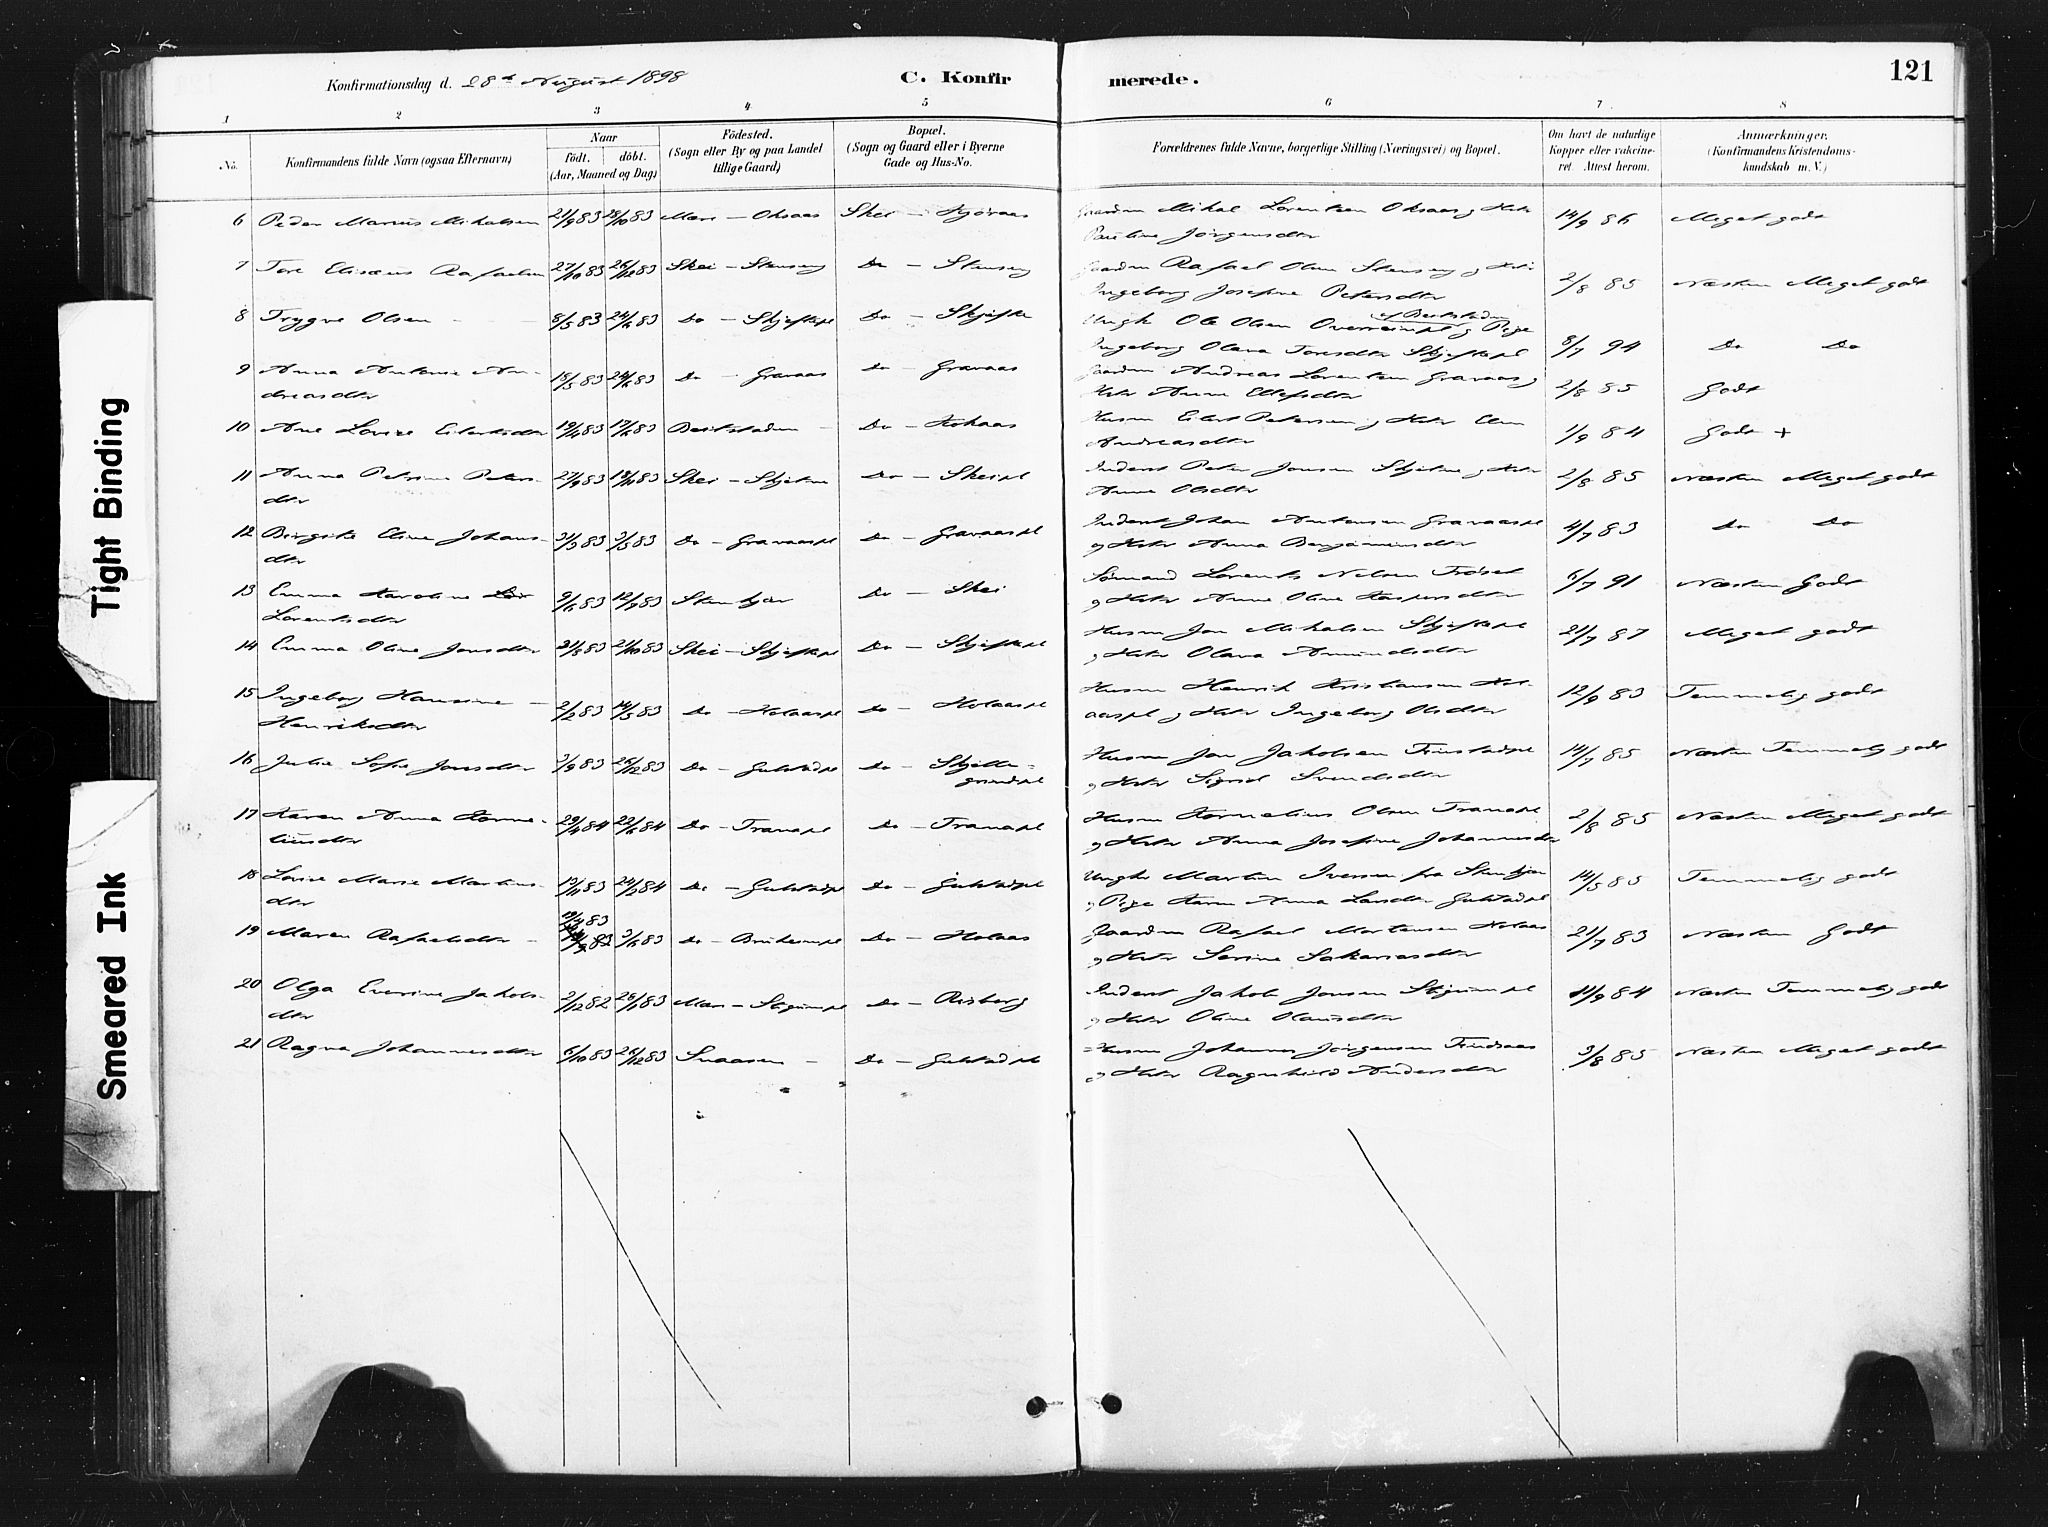 Konfirmationsdag d. 28de August 1898
C. Konfirmerede.
121
1 2 3 4 5 6 7 8
No.
Konfirmandens fulde Navn (ogsaa Efternavn)
Naar
födt. döbt.
(Aar, Maaned og Dag)
Födested.
(Sogn eller By og paa Landet
tillige Gaard)
Bopæl.
(Sogn og Gaard eller i Byerne
Gade og Hus-No.
Forældrenes fulde Navne, borgerlige Stilling (Næringsvei) og Bopæl.
Om havt de naturlige
Kopper eller vakcine-
ret. Attest herom.
Anmærkninger.
(Konfirmandens Kristendoms-
kundskab m. V.)
6 Peder Marius Mikalsen 21/9 83 28/10 83 Mære - Oksaas Skei - Gaardm Mikal Lorentsen Oksaas og Hstr 14/9 86 Meget godt
Pauline Jørgensdtr
7 Tore Eliseus Rafaelsen 27/10 83 26/12 83 Skei - Stenseng Do - Stenseng Gaardm Rafael Olsen Stenseng og Hstr 2/8 85 Næsten Meget godt
Ingeborg Josefine Petersdtr
8 Trygve Olsen 8/5 83 24/6 83 Do - Skjeftepl Do - Skjefte Ungk Ole Olsen og Pige
af Beitstaden
Ingeborg Olava Toresdtr Skjeftepl 8/7 94 Do Do
9 Anna Antonie An-
dreasdtr 18/5 83 24/6 83 Do - Gravaas Do - Gravaas Gaardm Andreas Lorentsen Gravaas og
Hstr Anne Ellefsdtr 2/8 85 Godt
10 Ane Lovise Eilertsdtr 19/4 83 17/6 83 Beitstaden Do - Holaas Husm Eilert Petersen og Hstr Elen
Andreasdtr 1/9 84 Godt +
11 Anna Petrine Peters-
dtr 27/9 83 18/11 83 Skei - Do - Skeipl Inderst Peter Jonsen og Hstr
Anne Olsdtr 2/8 85 Næsten Meget godt
12 Birgitte Eline Johans-
dtr 31/3 83 3/5 83 Do - Gravaaspl Do - Gravaaspl Inderst Johan Antonsen Gravaaspl
og Hstr Anna Benjaminsdtr 4/7 83 Do Do
13 Emma Karoline
Lorentsdtr 9/6 83 12/7 83 Stenkjær Do - Skei Sømand Lorents Nelsen Trøset
og Hstr Anne Oline Kaspersdtr 6/7 91 Næsten Godt
14 Emma Oline Jonsdtr 31/8 83 21/10 83 Skei - Skjeftepl Do - Skjeftepl Husm Jon Mikalsen Skjeftepl
og Hstr Olava Amundsdtr 21/7 87 Meget godt
15 Ingeborg Hansine
Henriksdtr 2/2 83 14/5 83 Do - Holaaspl Do - Holaaspl Husm Henrik Kristiansen Hol-
aaspl og Hstr Ingeborg Olsdtr 12/9 83 Temmelig godt
16 Julie Sofie Jonsdtr 3/9 83 26/12 83 Do - Gulstadpl Do - Skjelle-
grindpl Husm Jon Jakobsen
og Hstr Sigrid Svendsdtr 14/7 85 Næsten Temmelig godt
17 Karen Anna Korne-
liusdtr 29/4 84 22/6 84 Do - Tranapl Do - Tranapl Husm Kornelius Olsen Tranapl
og Hstr Anna Josefine Johannesdtr 2/8 85 Næsten Meget godt
18 Lovise Marie Martins-
dtr 19/11 83 24/2 84 Do - Gulstadpl Do - Gulstadpl Ungk Martin Iversen fra Stenkjær
og Pige Karen Anna Larsdtr Gulstadpl 14/5 85 Temmelig godt
19 Maren Rafaelsdtr 19/4 83 3/6 83 Do - Do - Holaas Gaardm Rafael Mortensen Holaas
og Hstr Serine Sakariasdtr 21/7 83 Næsten Godt
20 Olga Everine Jakobs-
dtr 2/12 82 26/1 83 Mære - Do - Risberg Inderst Jakob Jonsen
og Hstr Oline Olausdtr 11/9 84 Næsten Temmelig godt
21 Ragna Johannesdtr 6/10 83 26/12 83 Snaasen Do - Gulstadpl Husm Johannes Jørgensen
og Hstr Ragnhild Andersdtr 3/8 85 Næsten Meget godt
Tight Binding
Smeared Ink